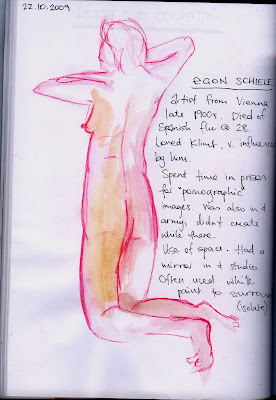 22.10.2009
EGON SCHIELE
Artist from Vienna
late 1900s. Died of
Spanish flu @ 28.
Loved Klimt, v. influence
by him.
Spent time in prison
for "pornographic"
images. Was also in t
army, didn't create
while there.
Use of space. Had a
mirror in t studio
Often used white
paint to surroun
(isolate)